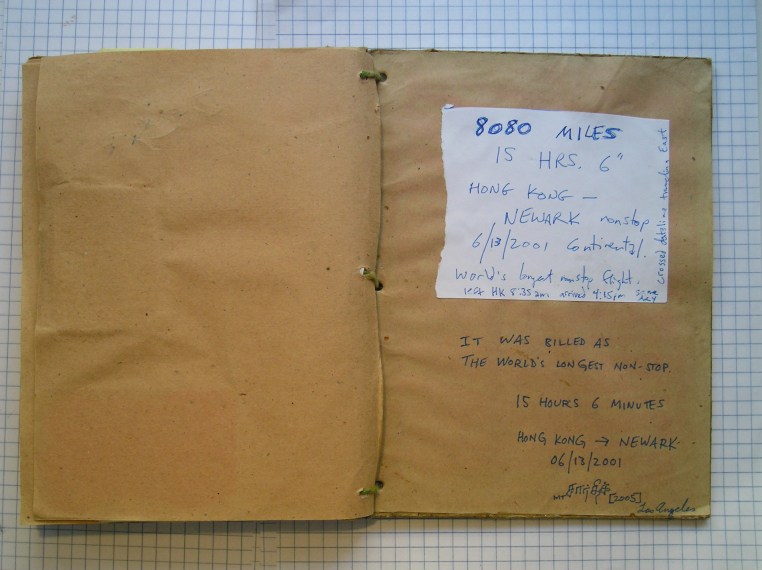 8080 MILES
15 HRS. 6"
HONG KONG —
NEWARK nonstop
6/13/2001 Continental.
World's longest nonstop flight.
left HK 8:35am arrived 4:15pm same day
crossed dateline traveling East
IT WAS BILLED AS
THE WORLD'S LONGEST NON-STOP.
15 HOURS 6 MINUTES
HONG KONG → NEWARK
06/13/2001
[2005]
Los Angeles